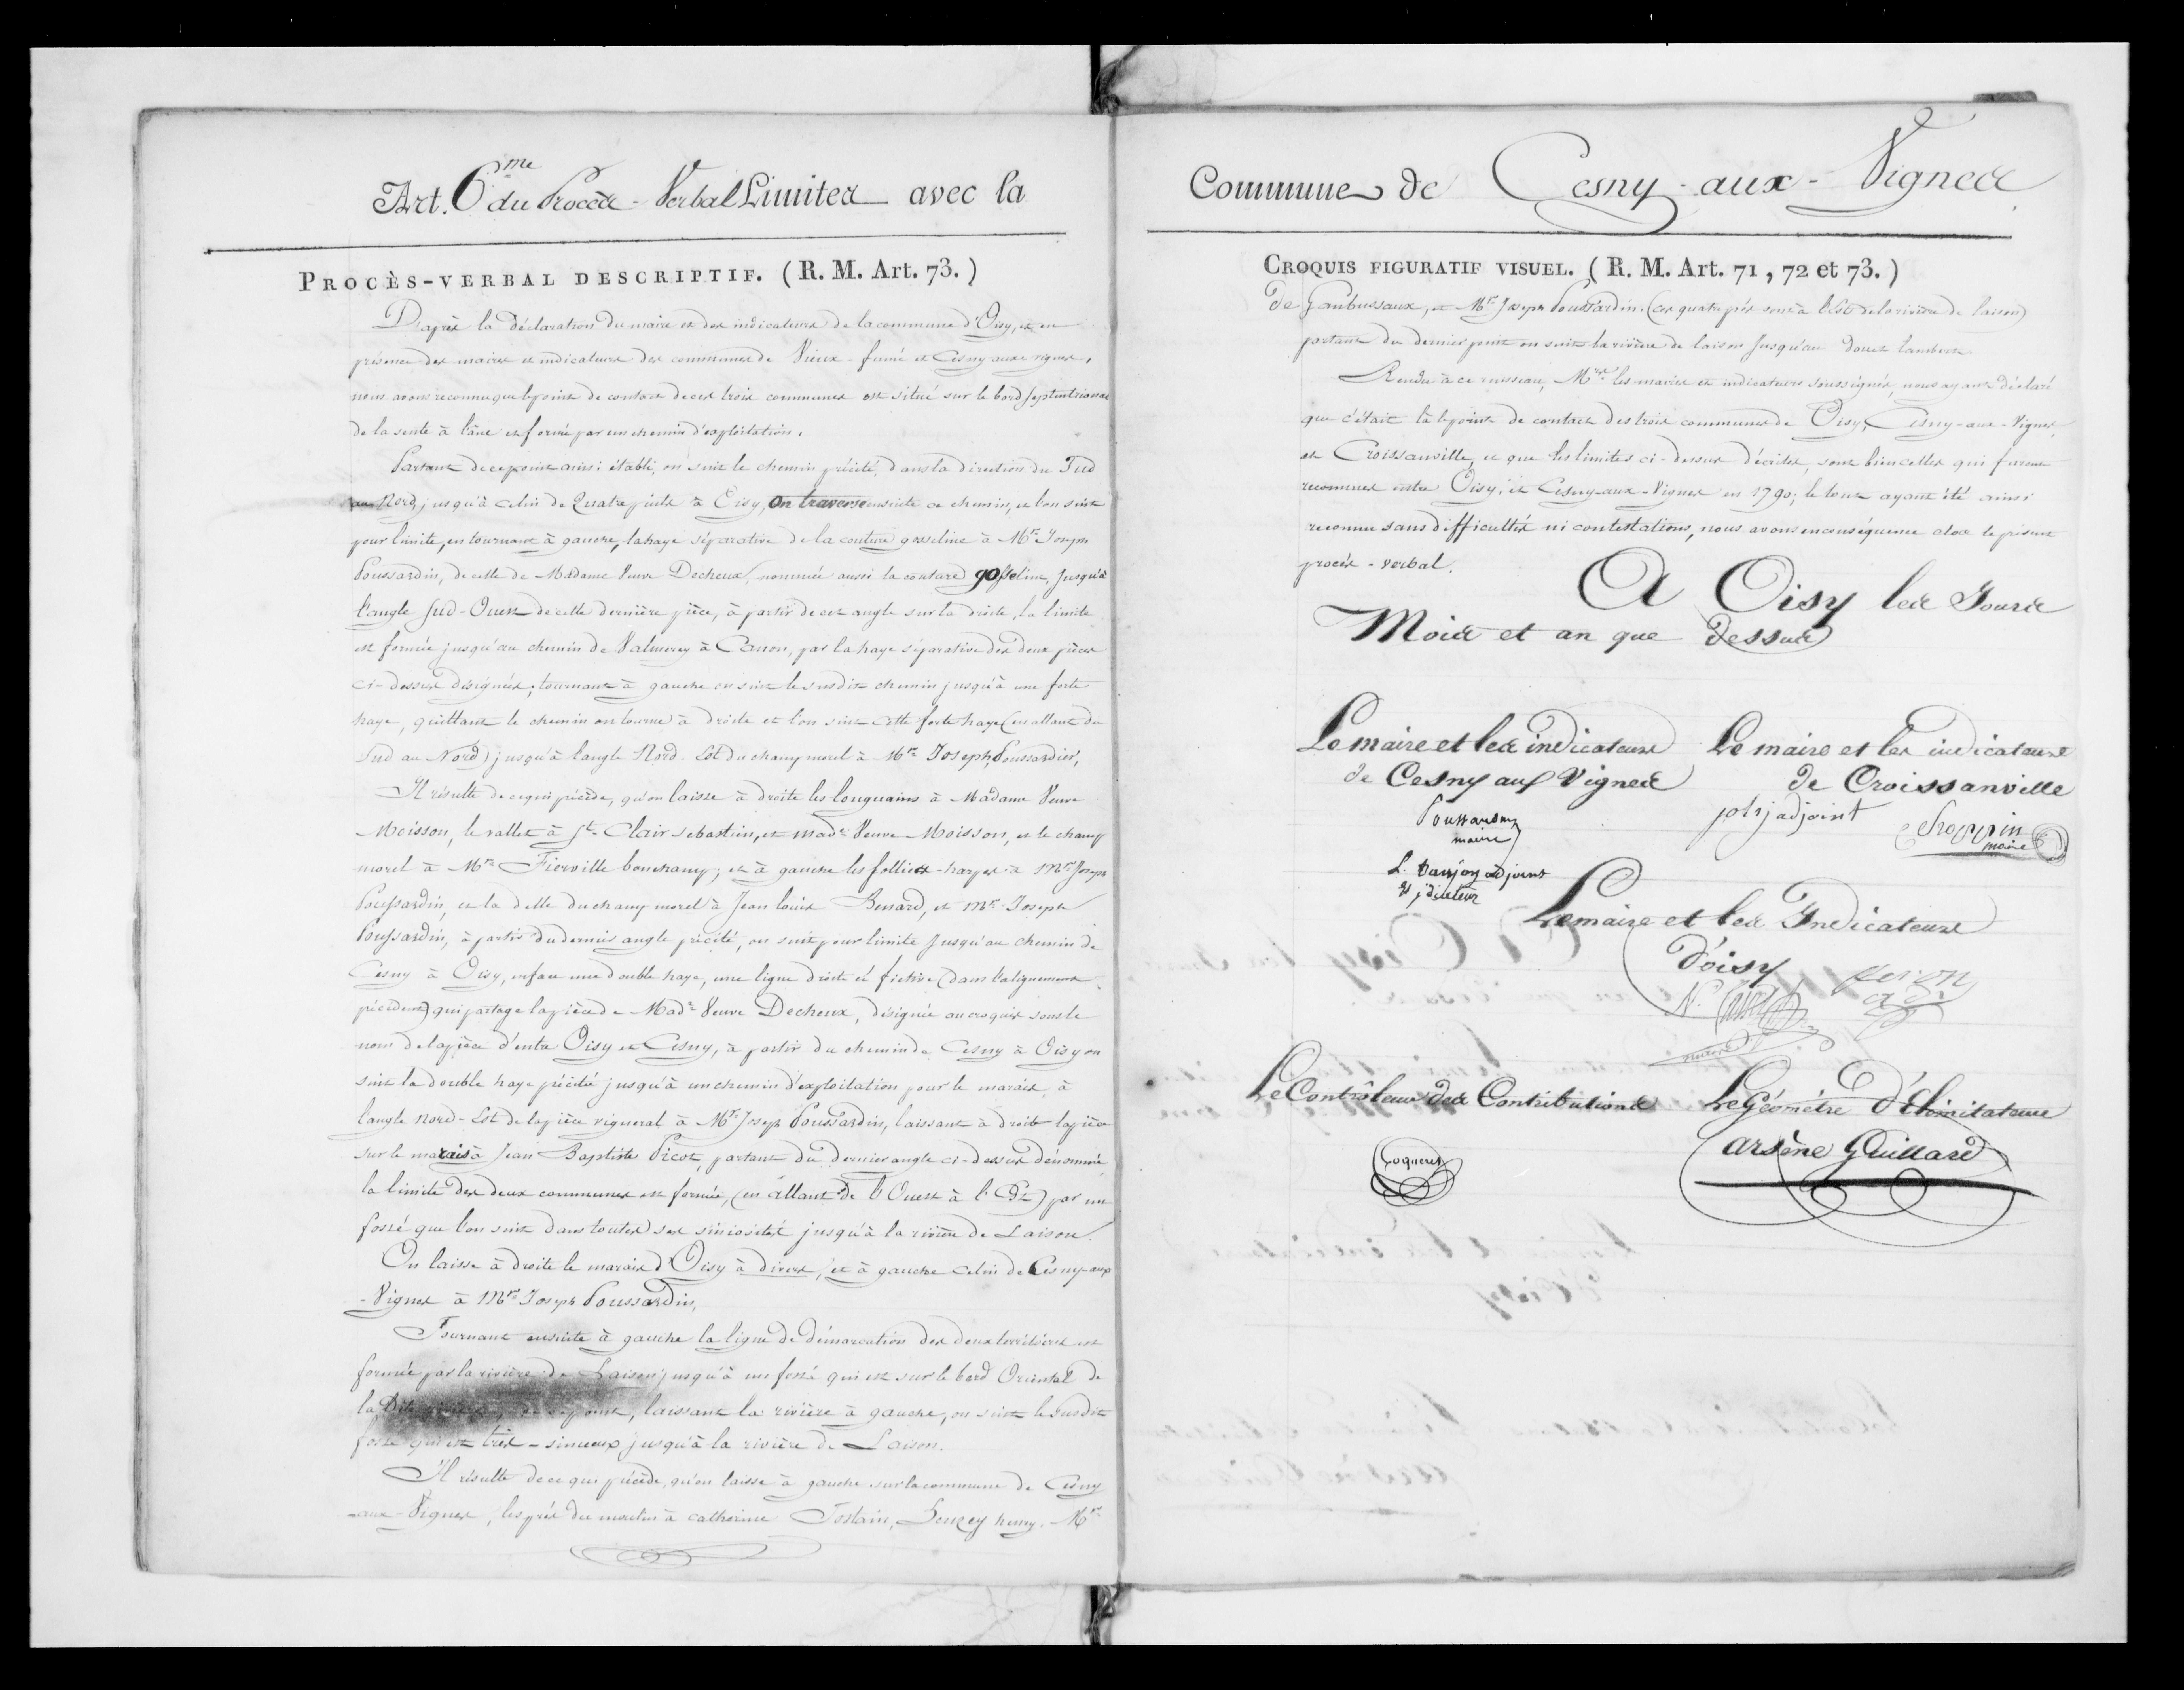 Art. 6me du Procès-Verbal Limites avec la
PROCÈS-VERBAL DESCRIPTIF. (R. M. Art. 73.)
D'après la déclaration du maire et des indicateurs de la commune d'Oisy, et en
présence des maires et indicateurs des communes de Vieux-fumé et Cesny-aux-vignes,
nous avons reconnu que le point de contact de ces trois communes est situé sur le bord septentrional
de la sente à l'âne et formé par un chemin d'exploitation.
Partant de ce point ainsi établi, on suit le chemin précité, dans la direction du Sud
au Nord, jusqu'à celui de Quatre puits à Oisy, on traverse ensuite ce chemin, et l'on suit
pour limite, en tournant à gauche, la haye séparative de la couture gosseline à Mr. Joseph
Poussardin, de celle de Madame Veuve Decheux, nommée aussi la couture gosseline, jusqu'à
l'angle Sud-Ouest de cette dernière pièce, à partir de cet angle sur la droite, la limite
est formée jusqu'au chemin de Valmeray à Canon, par la haye séparative des deux pièces
ci-dessus désignées; tournant à gauche on suit le susdit chemin jusqu'à une forte
haye, quittant le chemin on tourne à droite et l'on suit cette forte haye (en allant du
Sud au Nord) jusqu'à l'angle Nord-Est du champ morel à Mr. Joseph Poussardin,
Il résulte de ce qui précède, qu'on laisse à droite les longuains à Madame Veuve
Moisson, le vallet à St. Clair sebastien, et made. Veuve Moisson, et le champ
morel à Mr. Fierville bonchamp; et à gauche les follies-harpes à Mr. Joseph
Poussardin, et la delle du champ morel à Jean louis Benard, et Mr. Joseph
Poussardin, à partir du dernier angle précité, on suit pour limite jusqu'au chemin de
Cesny à Oisy, en face une double haye, une ligne droite et fictive (dans l'alignement
précédent) qui partage la pièce de Made. Veuve Decheux, désignée au croquis sous le
nom de la pièce d'entre Oisy et Cesny, à partir du chemin de Cesny à Oisy on
suit la double haye précitée jusqu'à un chemin d'exploitation pour le marais, à
l'angle nord-Est de la pièce vigneral à Mr. Joseph Poussardin, laissant à droite la pièce
sur le marais à Jean Baptiste Picot, partant du dernier angle ci-dessus dénommé,
la limite des deux communes est formée, (en allant de l'Ouest à l'Est) par un
fossé que l'on suit dans toutes ses sinuosités jusqu'à la rivière de Laison.
On laisse à droite le marais d'Oisy à divers, et à gauche celui de Cesny-aux
-Vignes à Mr. Joseph Poussardin,
Tournant ensuite à gauche la ligne de démarcation des deux territoires est
formée par la rivière de Laison jusqu'à un fossé qui est sur le bord Oriental de
la dite point, laissant la rivière à gauche, on suit le susdit
fossé qui est très-sinueux, jusqu'à la rivière de Laison.
Il résulte de ce qui précède, qu'on laisse à gauche sur la commune de Cesny
-aux-Vignes, les prés du moulin à catherine Tostain, henry, Mr.
Commune de Cesny-aux-Vignes
CROQUIS FIGURATIF VISUEL. (R. M. Art. 71, 72 et 73.)
de Gaubussaux, et Mr. Joseph Poussardin. (ces quatre prés sont à l'Est de la rivière de laison)
partant du dernier point on suit la rivière de laison jusqu'au douet lambert.
Rendu à ce ruisseau, Mrs. les maires et indicateurs soussignés, nous ayant déclaré
que c'était là le point de contact des trois communes de Oisy, Cesny-aux-Vignes
et Croissanville, et que les limites ci-dessus décrites, sont bien celles qui furent
reconnues entre Oisy, et Cesny-aux-Vignes en 1790; le tout ayant été ainsi
reconnu sans difficultés ni contestations, nous avons en conséquence clos le présent
procès-verbal.
A Oisy les Jours
Mois et an que dessus
Le maire et les indicateurs
de Cesny aux Vignes
Le maire et les indicateurs
de Croissanville
Poussardin
maire
adjoint
maire
adjoint
Le maire et les Indicateurs
d'oisy
N.
maire
Le Contrôleur des Contributions
Le Géomètre Délimitateur
Coqueret
arsène Guillard